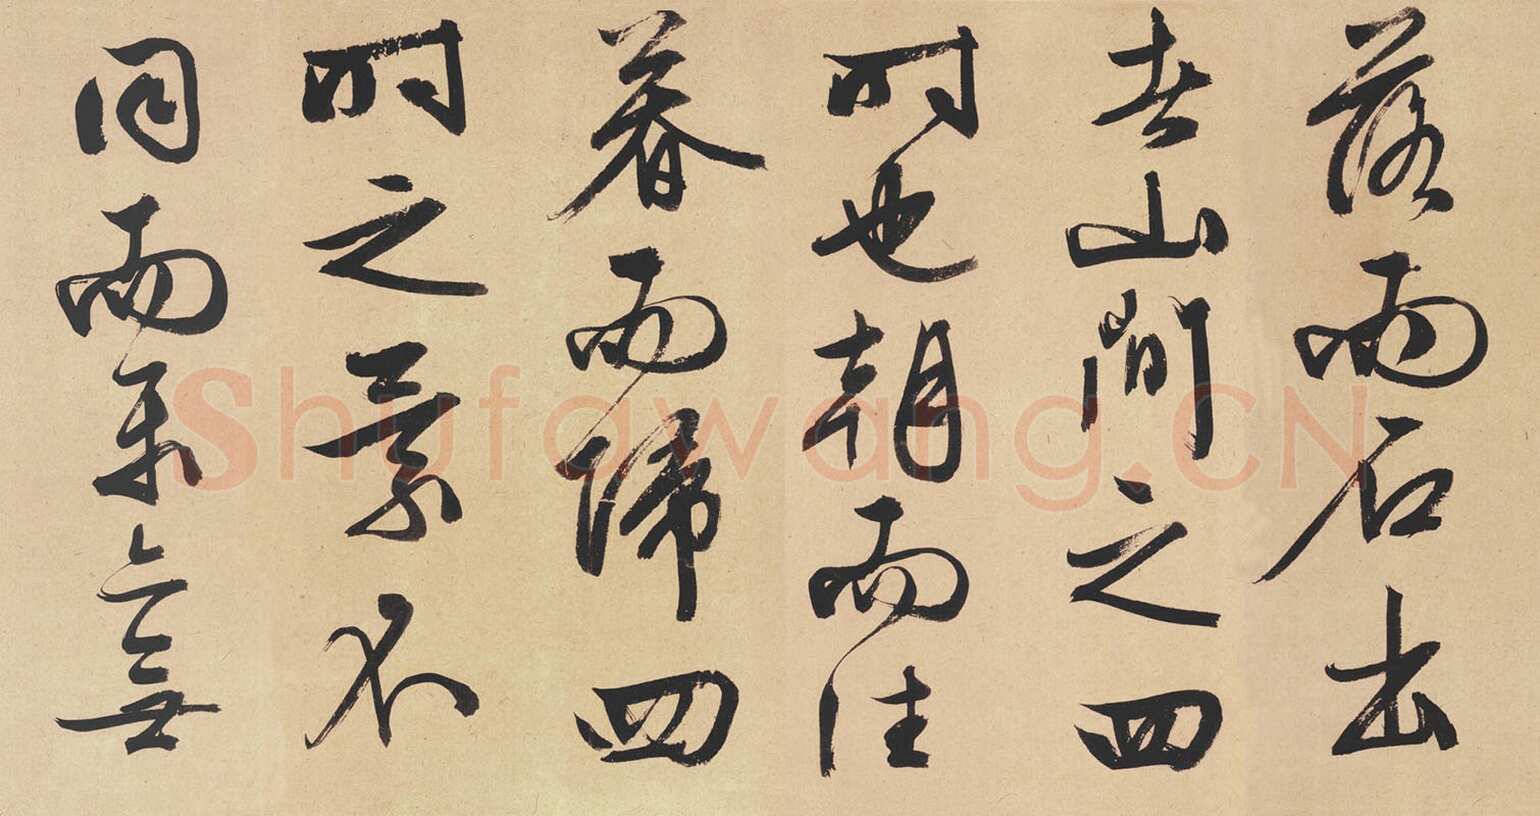 落而石出
者山間之四
時也朝而往
暮而歸四
時之景不
同而樂亦無
Shufawang.CN